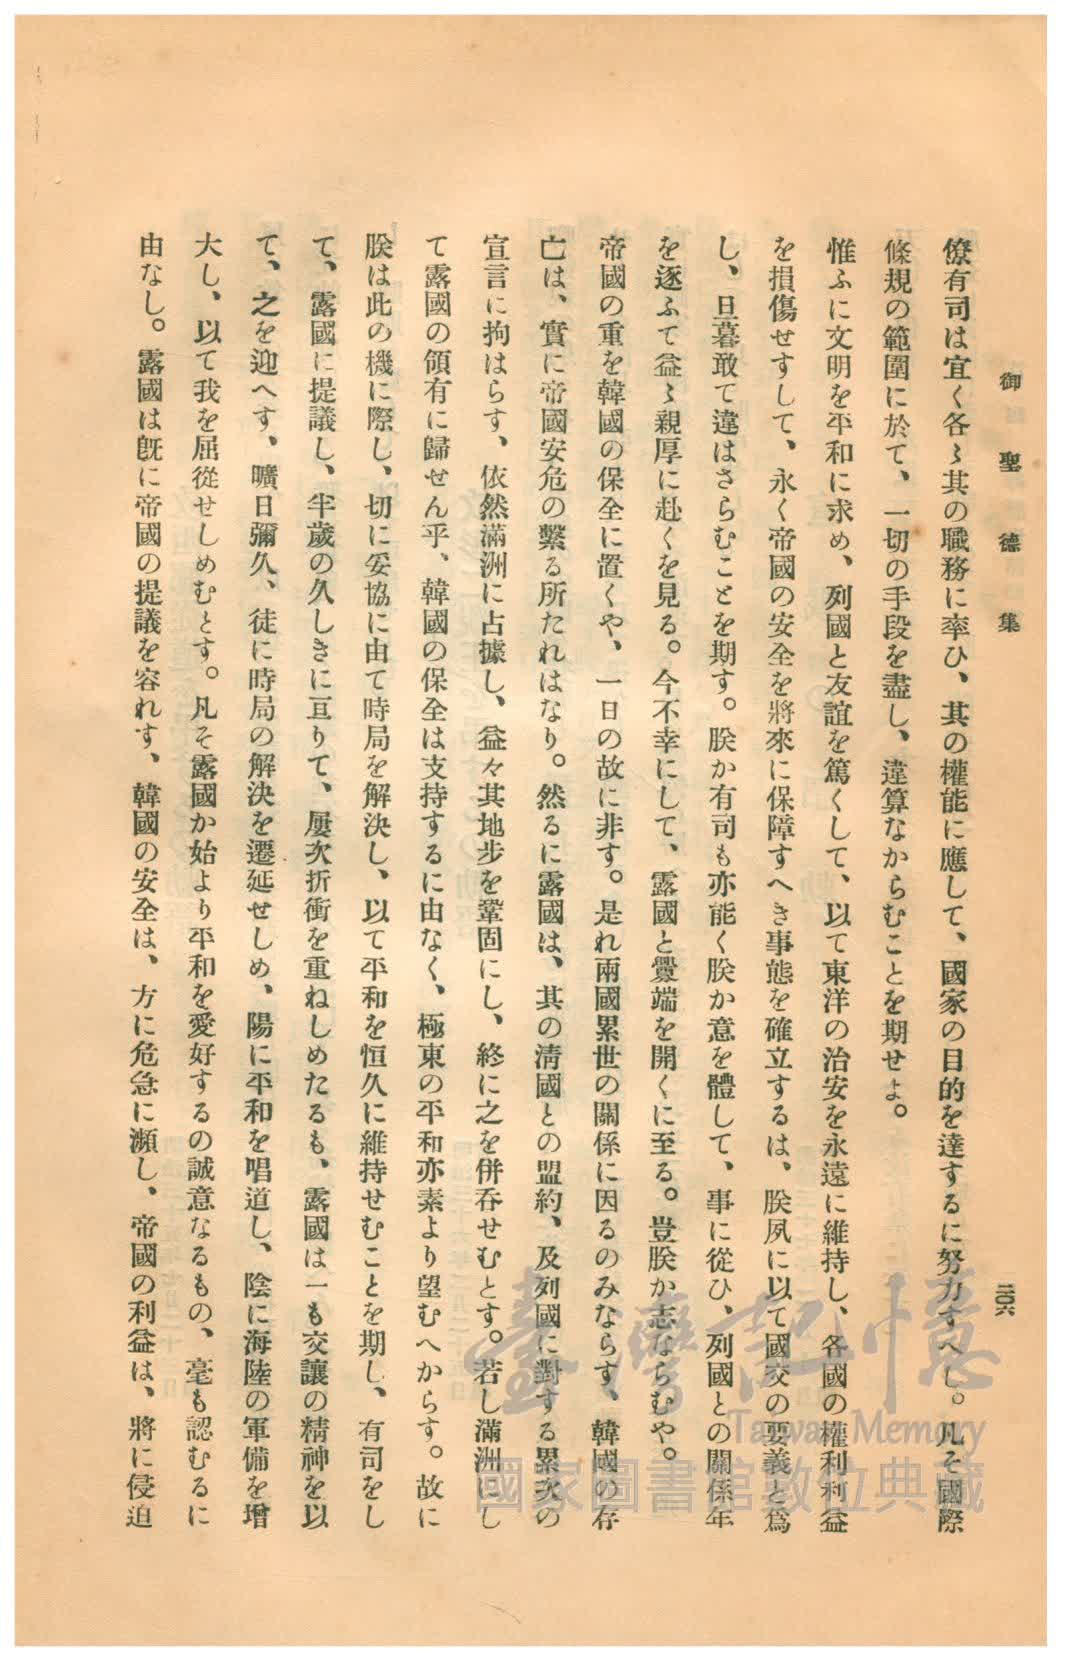 御聖德集
二〇六
僚有司は宜く各〻其の職務に率ひ、其の權能に應して、國家の目的を達するに努力すへし。凡そ國際
條規の範圍に於て、一切の手段を盡し、違算なからむことを期せよ。
惟ふに文明を平和に求め、列國と友誼を篤くして、以て東洋の治安を永遠に維持し、各國の權利利益
を損傷せすして、永く帝國の安全を將來に保障すへき事態を確立するは、朕夙に以て國交の要義と爲
し、旦暮敢て違はさらむことを期す。朕か有司も亦能く朕か意を體して、事に從ひ、列國との關係年
を逐ふて益〻親厚に赴くを見る。今不幸にして、露國と釁端を開くに至る。豈朕か志ならむや。
帝國の重を韓國の保全に置くや、一日の故に非す。是れ兩國累世の關係に因るのみならす、韓國の存
亡は、實に帝國安危の繫る所たれはなり。然るに露國は、其の淸國との盟約、及列國に對する累次の
宣言に拘はらす、依然滿洲に占據し、益々其地步を鞏固にし、終に之を併吞せむとす。若し滿洲にし
て露國の領有に歸せん乎、韓國の保全は支持するに由なく、極東の平和亦素より望むへからす。故に
朕は此の機に際し、切に妥協に由て時局を解決し、以て平和を恒久に維持せむことを期し、有司をし
て、露國に提議し、半歲の久しきに亘りて、屢次折衝を重ねしめたるも、露國は一も交讓の精神を以
て、之を迎へす、曠日彌久、徒に時局の解決を遷延せしめ、陽に平和を唱道し、陰に海陸の軍備を增
大し、以て我を屈從せしめむとす。凡そ露國か始より平和を愛好するの誠意なるもの、毫も認むるに
由なし。露國は旣に帝國の提議を容れす、韓國の安全は、方に危急に瀕し、帝國の利益は、將に侵迫
臺灣記憶
Taiwan Memory
國家圖書館數位典藏